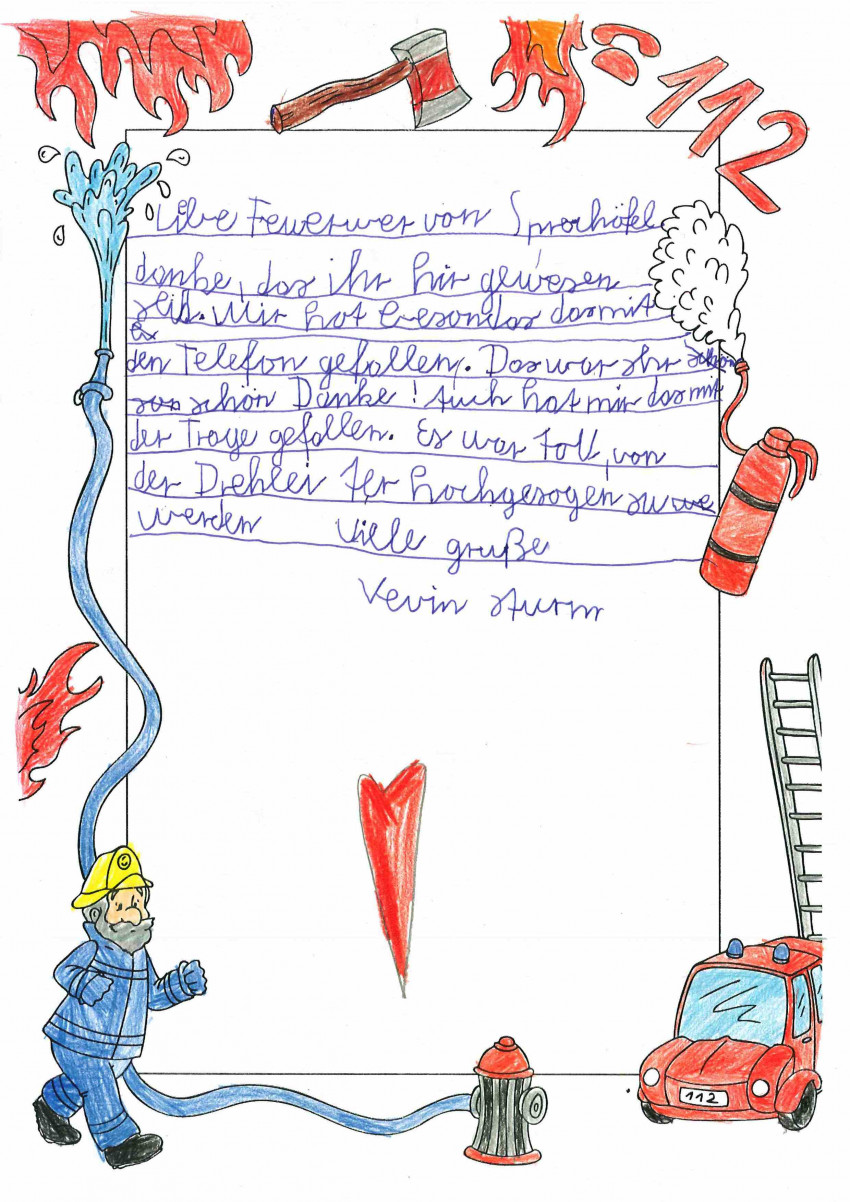 112
Liebe Feuerwer von Sprochöfel
danke, das ihr hir gewesen
seid. Mir hot besondas dasmit
den Telefon gefallen. Das war sehr schön
schön Danke! Auch hat mir das mit
der Trage gefallen. Es war toll, von
der Drehlei ter hochgezogen zu we
werden Viele gruße
Kevin sturm
112